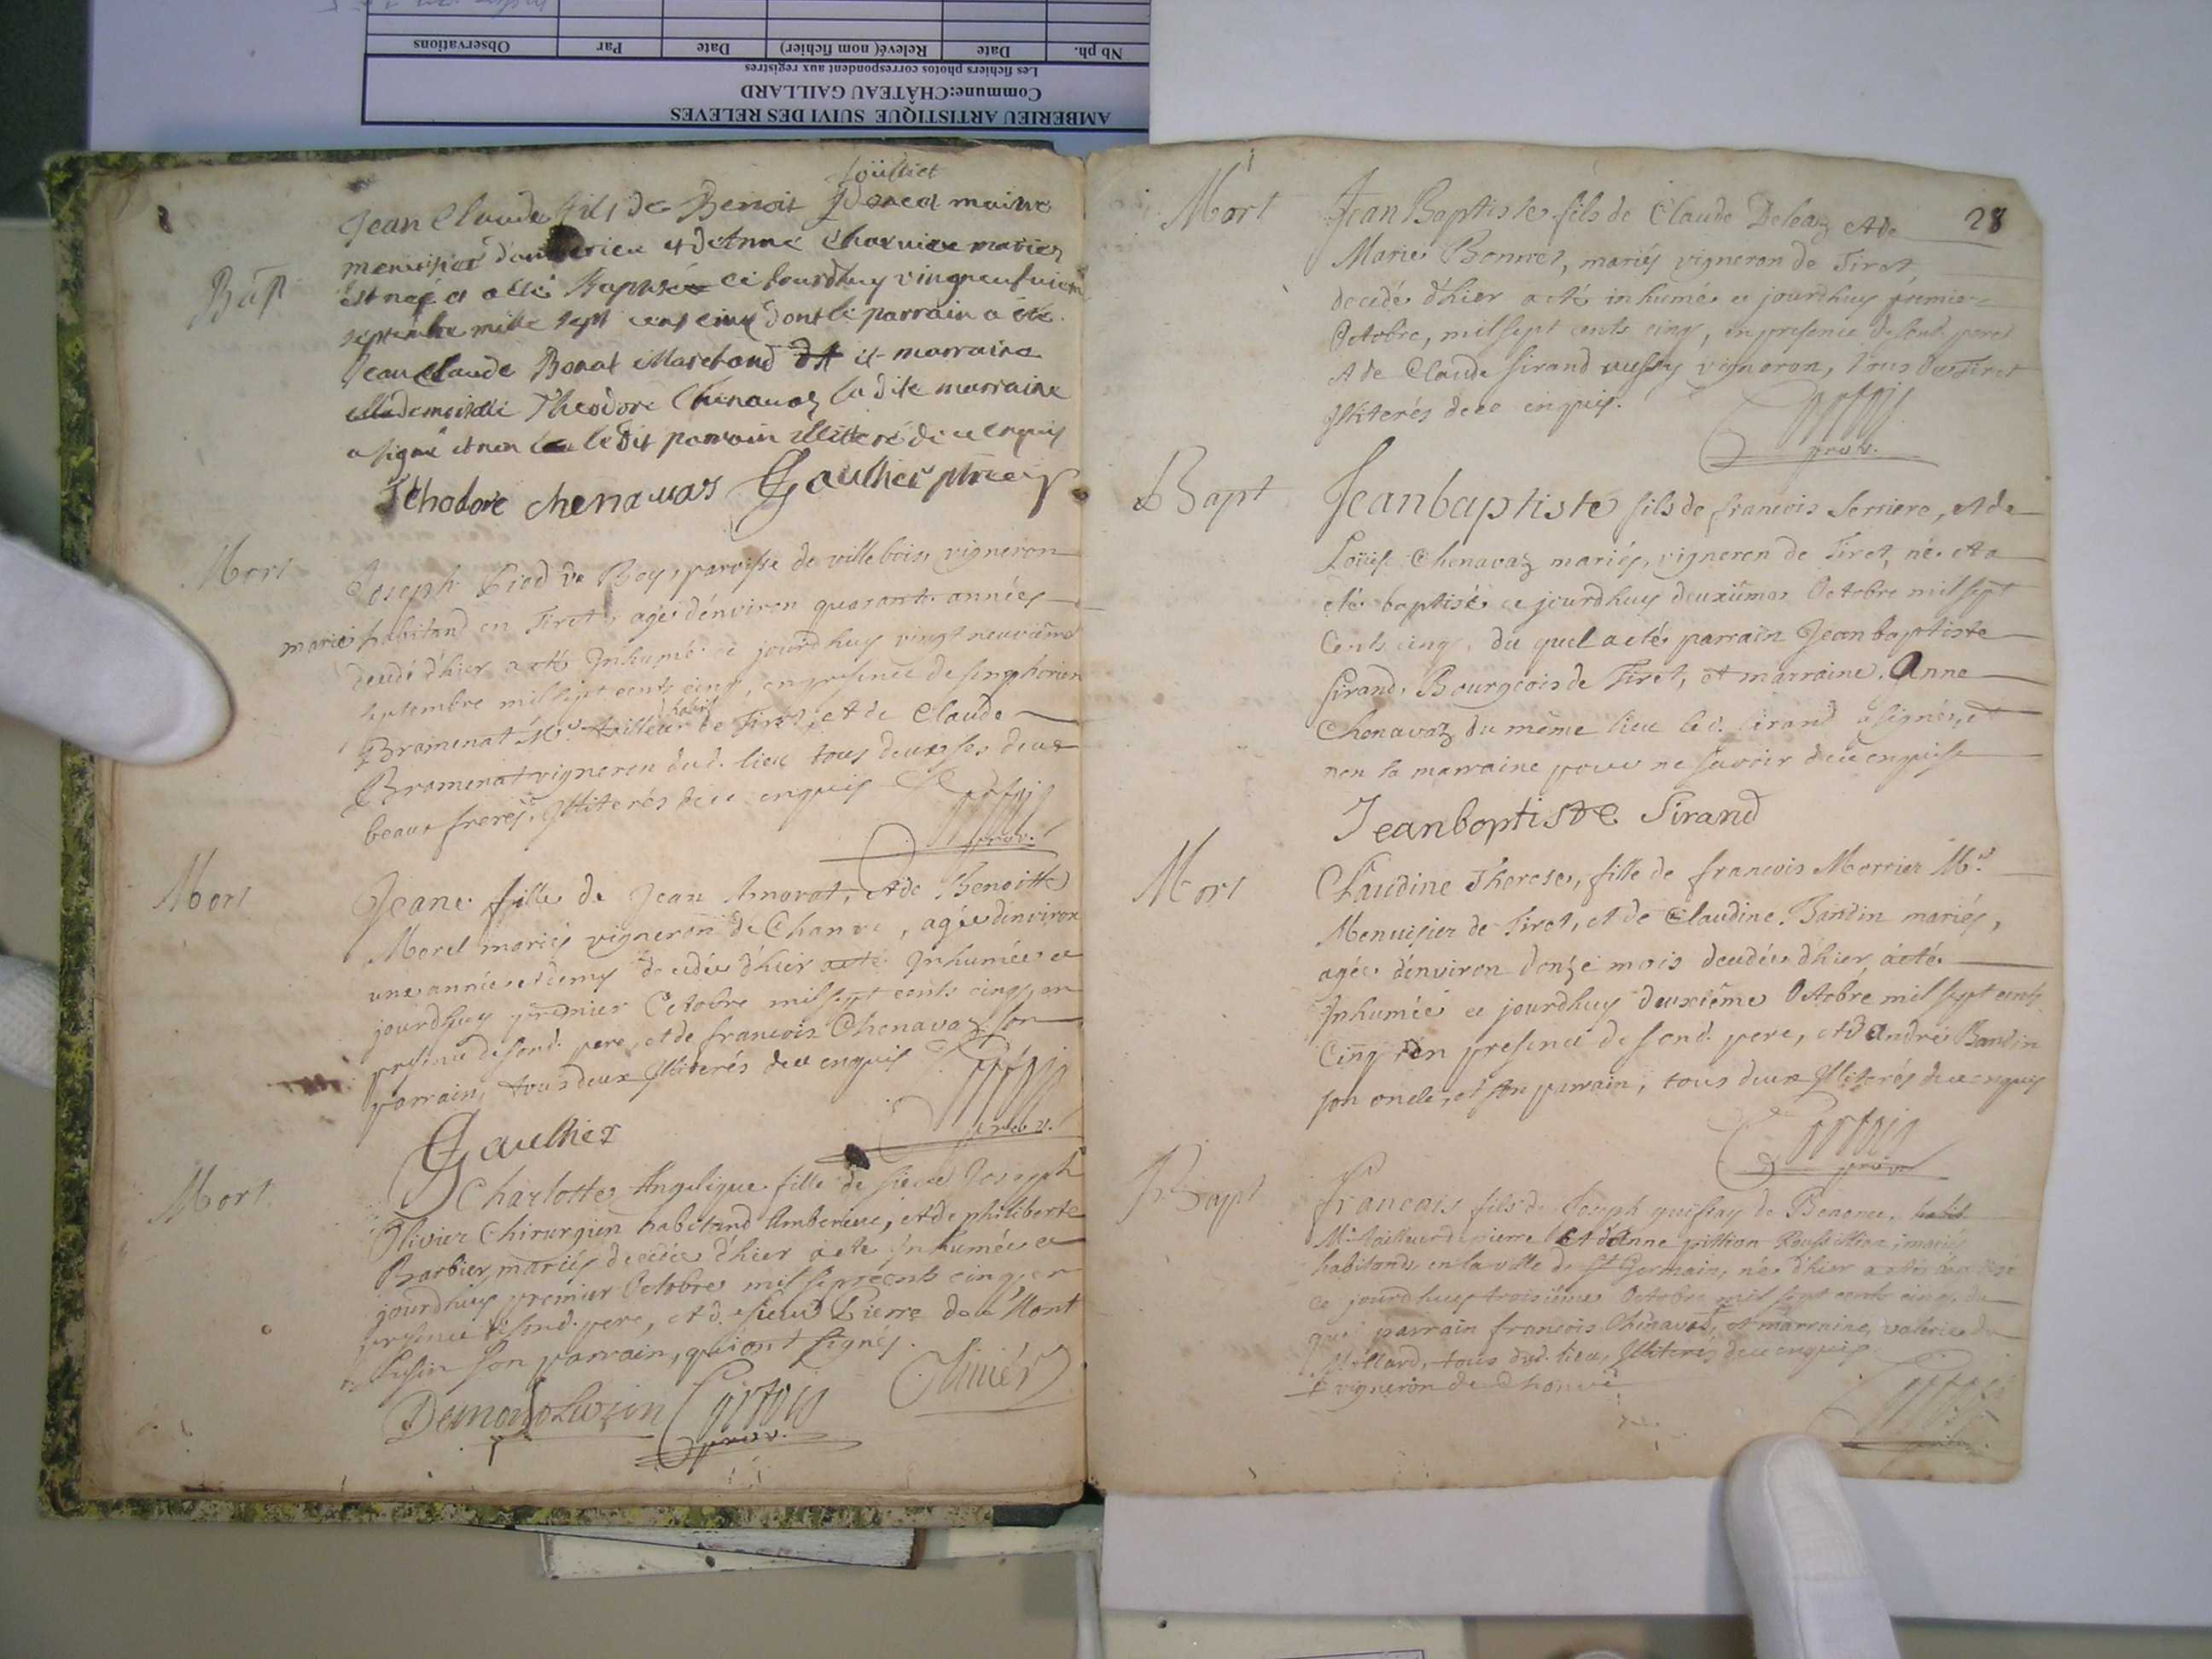 AMBERIEU ARTISTIQUE SUIVI DES RELEVES
Commune:CHÂTEAU GAILLARD
Les fichiers photos correspondent aux registres
Nb ph. Date Relevé( nom fichier) Date Par Observations
Joüilliet
Bap
Jean Claude fils de Benoit maitre
menuisier et dAnne mariez
est nez et a esté Baptisé ce Jourdhuy vingneufviem
septembre mille sept cens cinq dont le parrain a été
Jean Claude Bonat Marchand et marraine
Mademoiselle Theodore Chenavaz la dite marraine
a signé et non le dit parrain illitteré de ce enquis
Thodore chenauas Gaulhier
Mort
Joseph Piod de Bey, paroisse de villebois vigneron
marié habitand en Tiret, agé dénviron quarante années
decedé d'hier a eté Inhumé ce jourdhuy vingt neuviéme
septembre mil sept cents cinq, en presence de simphorien
Bramenat Mre tailleur d'habits de Tiret, et de Claude
Bramenat vigneron dud. lieu tous deux ses deux
beaux freres, Illiterés de ce enquis
Mort
Jeane fille de Jean Amarat, et de Benoitte
Morel mariés vigneron de Chanve, agée dénviron
une année et demy decedée d'hier a eté Inhumée ce
jourdhuy premier Octobre mil sept cents cinq, en
presence de sond. pere, et de francois Chenavaz son
parrain, tous deux Illiterés de ce enquis
Gaulhier
Mort
Charlotte Angelique fille de sieur Joseph
Olivier Chirurgien habitand Amberieu, et de philiberte
Barbier mariés decedée d'hier a eté Inhumée ce
jourdhuy premier Octobre mil sept cents cinq, en
presence de sond. pere, et de sieur Pierre de Mont
Lusin son parrain, qui ont signés.
Demonolwzin Cortois Olivier
28
Mort
Jean Baptiste fils de Claude Deleaz et de
Marie Bonnet, mariés vigneron de Tiret,
decedé d'hier a eté inhumé ce jourdhuy premier
Octobre, mil sept cents cinq, en presence de sond. peret
et de Claude Sirand aussy vigneron, tous de Tiret
Illiterés de ce enquis.
Bapt
Jeanbaptiste fils de francois Serriere, et de
Loüise Chenavaz mariés, vigneron de Tiret, né et a
eté baptisé ce jourdhuy deuxiéme Octobre mil sept
Cents cinq, du quel a eté parrain Jean baptiste
Sirand, Bourgeois de Tiret, et marraine Anne
Chenavaz du même lieu led. Sirand a signés, et
non la marraine pour ne savoir de ce enquise
Jeanboptiste Sirand
Mort
Claudine Therese, fille de francois Morrier Mre
Menuisier de Tiret, et de Claudine Bandin mariés,
agée dénviron donze mois decedée d'hier, a eté
Inhumée ce jourdhuy deuxiéme Octobre mil sept cents
Cinq en presence de sond. pere, et d'André Bandin
son oncle, et son parrain, tous deux Illiterés de ce enquis
Cortois
Bapt
francois fils de Joseph de
Mre tailleur de pierre et d'Anne mariés
habitands en la ville de St Germain, né d'hier a eté baptisé
ce jourdhuy troisiéme Octobre mil sept cents cinq, du
parrain francois Chenavaz, et marraine, valerie du
Mollard, tous dud. lieu, Illiterés de ce enquis
vigneron de Chanve